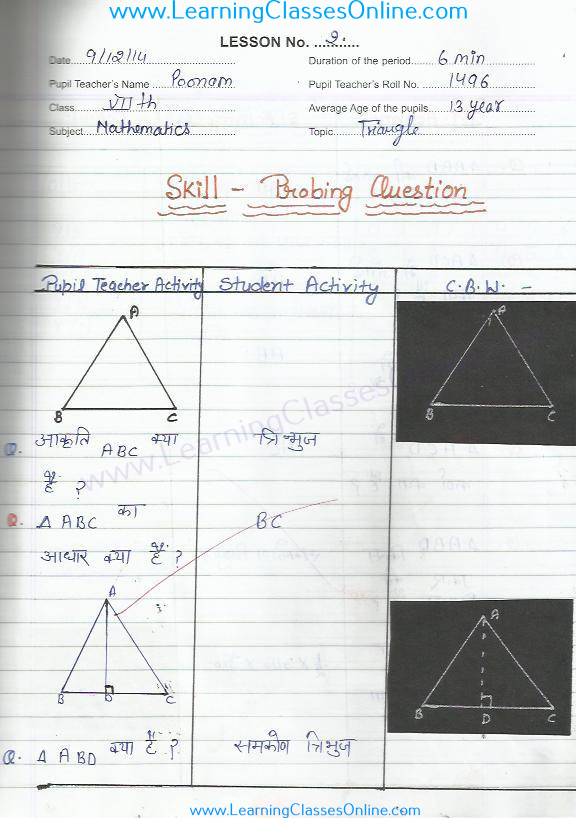 www.LearningClassesOnline.com
LESSON No. 2.
Date 9/12/14 Duration of the period 6 min
Pupil Teacher's Name Poonam Pupil Teacher's Roll No. 1496
Class VIIth Average Age of the pupils 13 year
Subject Mathematics Topic Triangle
Skill - Probing Question
Pupil Teacher Activity Student Activity C.B.W. -
A A
B C B C
Q. आकृति ABC क्या त्रिभुज
है ?
Q. Δ ABC का BC
आधार क्या है ?
A A
B D C B D C
Q. Δ ABD क्या है ? समकोण त्रिभुज
www.LearningClasses
www.LearningClassesOnline.com